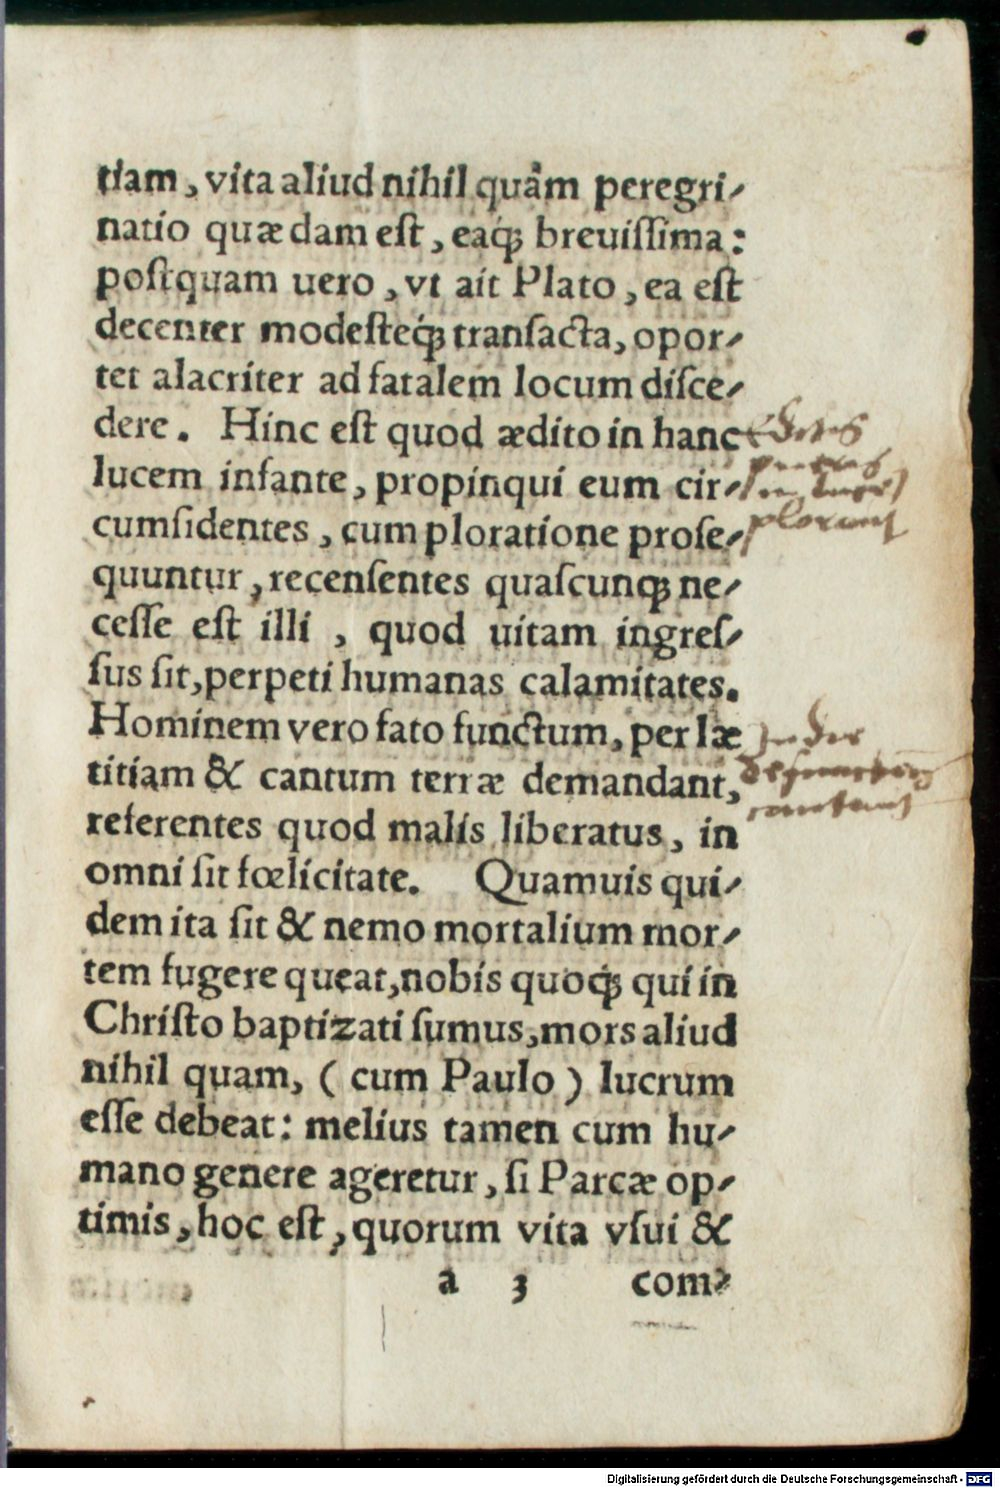 tiam, vita aliud nihil quâm peregri-
natio quædam est, eaqꝫ breuiſſima:
poſtquam uero, vt ait Plato, ea eſt
decenter modeſteqꝫ tranſacta, opor-
tet alacriter ad fatalem locum diſce-
dere. Hinc eſt quod ædito in hanc
lucem infante, propinqui eum cir-
cumſidentes, cum ploratione proſe-
quuntur, recenſentes quaſcunqꝫ ne-
ceſſe eſt illi, quod uitam ingreſ-
ſus ſit, perpeti humanas calamitates.
Hominem vero fato functum, per læ
titiam & cantum terræ demandant,
referentes quod malis liberatus, in
omni ſit fœlicitate. Quamuis qui-
dem ita ſit & nemo mortalium mor-
tem fugere queat, nobis quoqꝫ qui in
Chriſto baptizati ſumus, mors aliud
nihil quam, ( cum Paulo ) lucrum
eſſe debeat: melius tamen cum hu-
mano genere ageretur, ſi Parcæ op-
timis, hoc eſt, quorum vita vſui &
a 3 com-
plorant
cantant
Digitalisierung gefördert durch die Deutsche Forschungsgemeinschaft - DFG